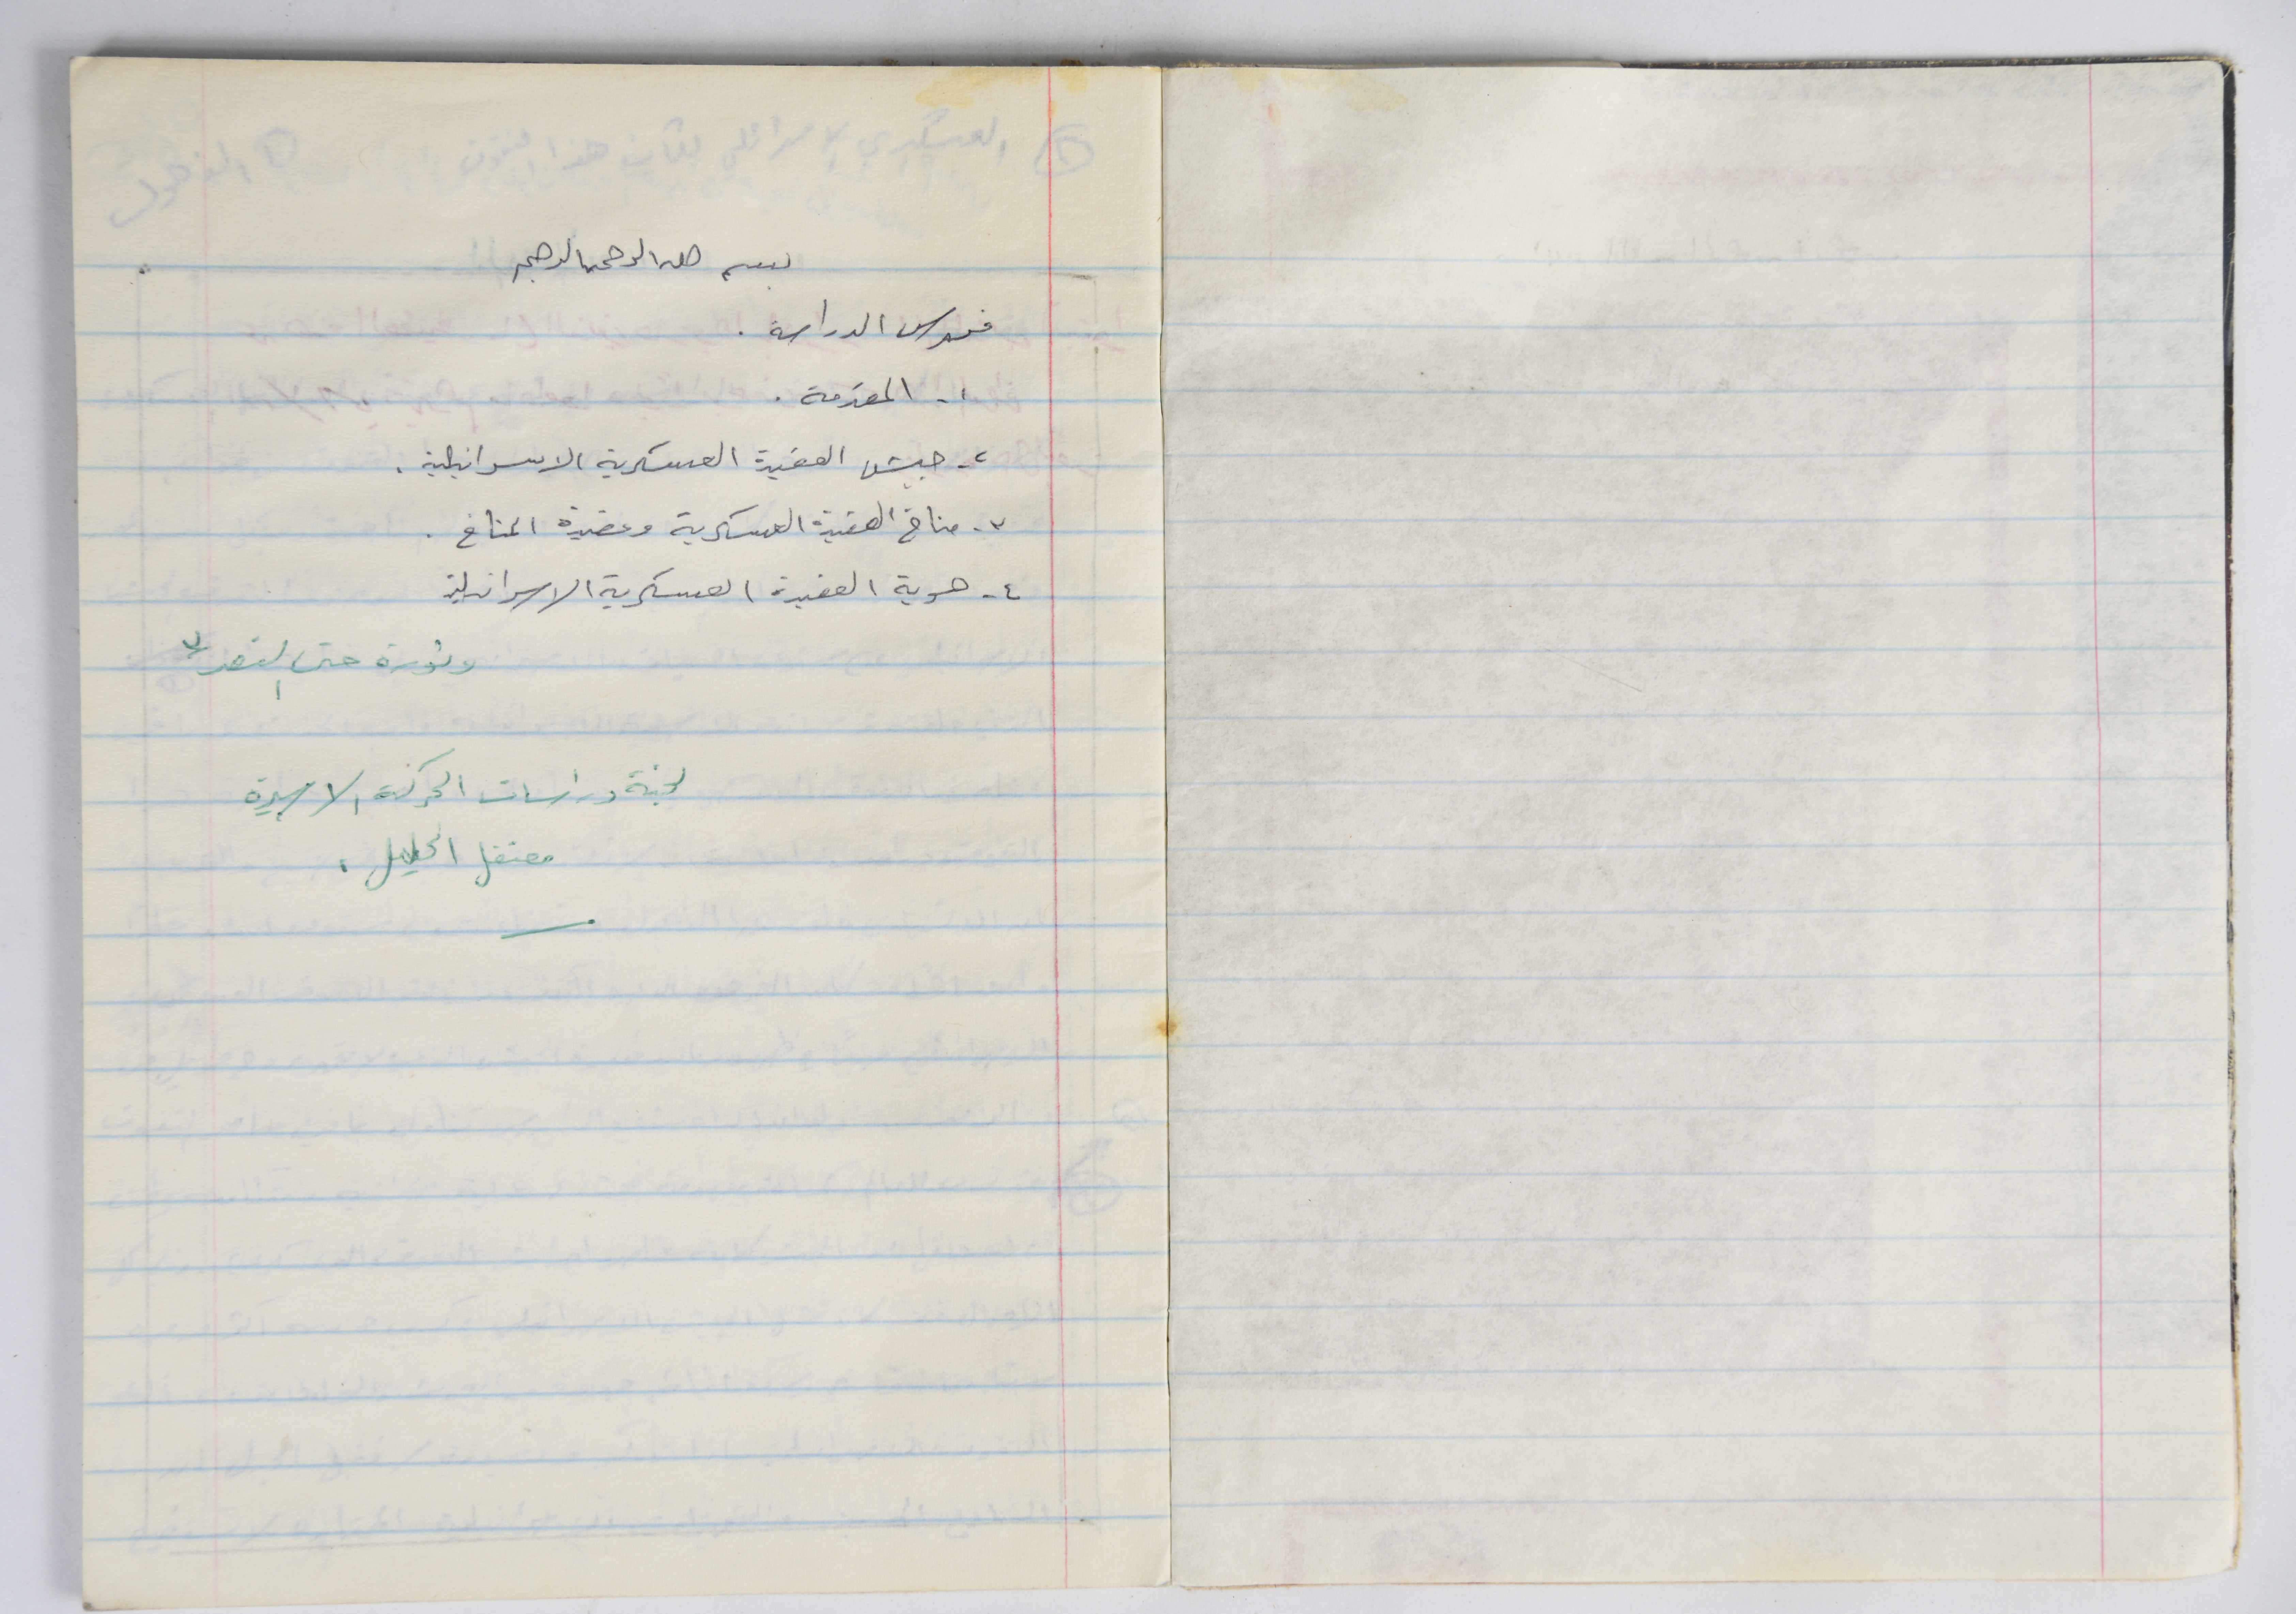 بسم الله الرحمن الرحيم
فهرس الدراسة .
١- المقدمة .
٢- جيش العقيدة العسكرية الاسرائيلية .
٣- مناخ العقيدة العسكرية وعقيدة المناخ .
٤- هوية العقيدة العسكرية الاسرائيلية
وثورة حتى النصر
لجنة دراسات الحركة الاسيرة
معتقل الخليل .